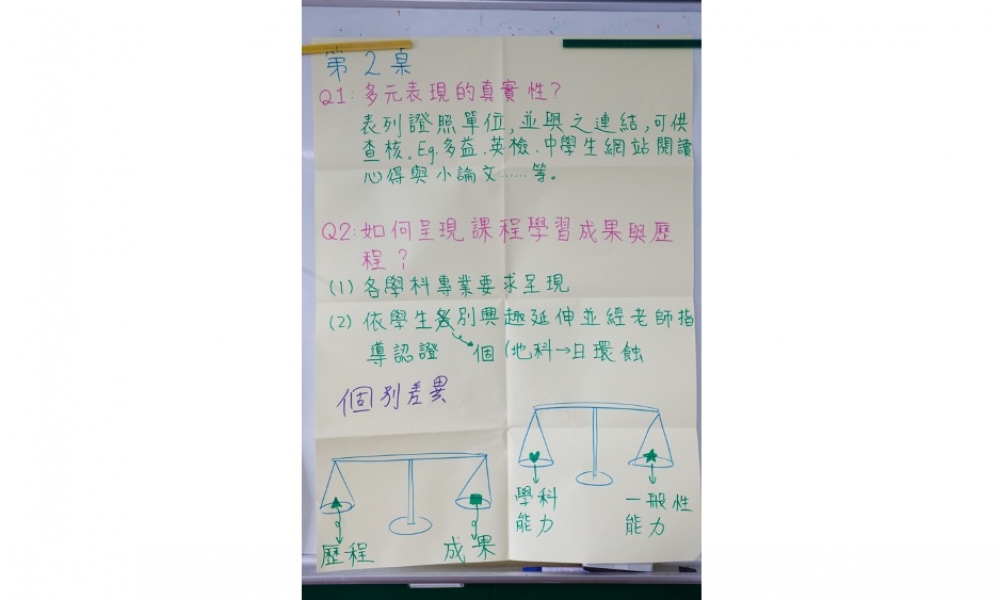 第2桌
Q1:多元表現的真實性?
表列證照單位,並與之連結,可供
查核。Eg.多益.英檢.中學生網站閱讀
心得與小論文……等。
Q2:如何呈現課程學習成果與歷
程?
(1) 各學科專業要求呈現
(2) 依學生別興趣延伸並經老師指
導認證 個 (地科→日環蝕
個別差異
學科
能力
一般性
能力
歷程
成果